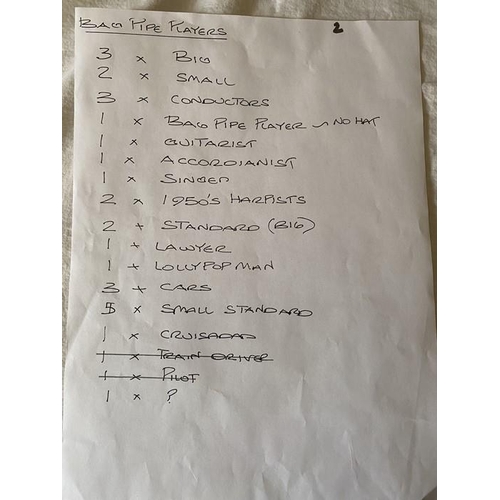 BAG PIPE PLAYERS 2
3 x BIG
2 x SMALL
3 x CONDUCTORS
1 x BAG PIPE PLAYER ~ NO HAT
1 x GUITARIST
1 x ACCORDIANIST
1 x SINGER
2 x 1950'S HARPISTS
2 + STANDARD (BIG)
1 + LAWYER
1 + LOLLYPOP MAN
3 + CARS
5 x SMALL STANDARD
1 x
1 x TRAIN DRIVER
1 x PILOT
1 x ?